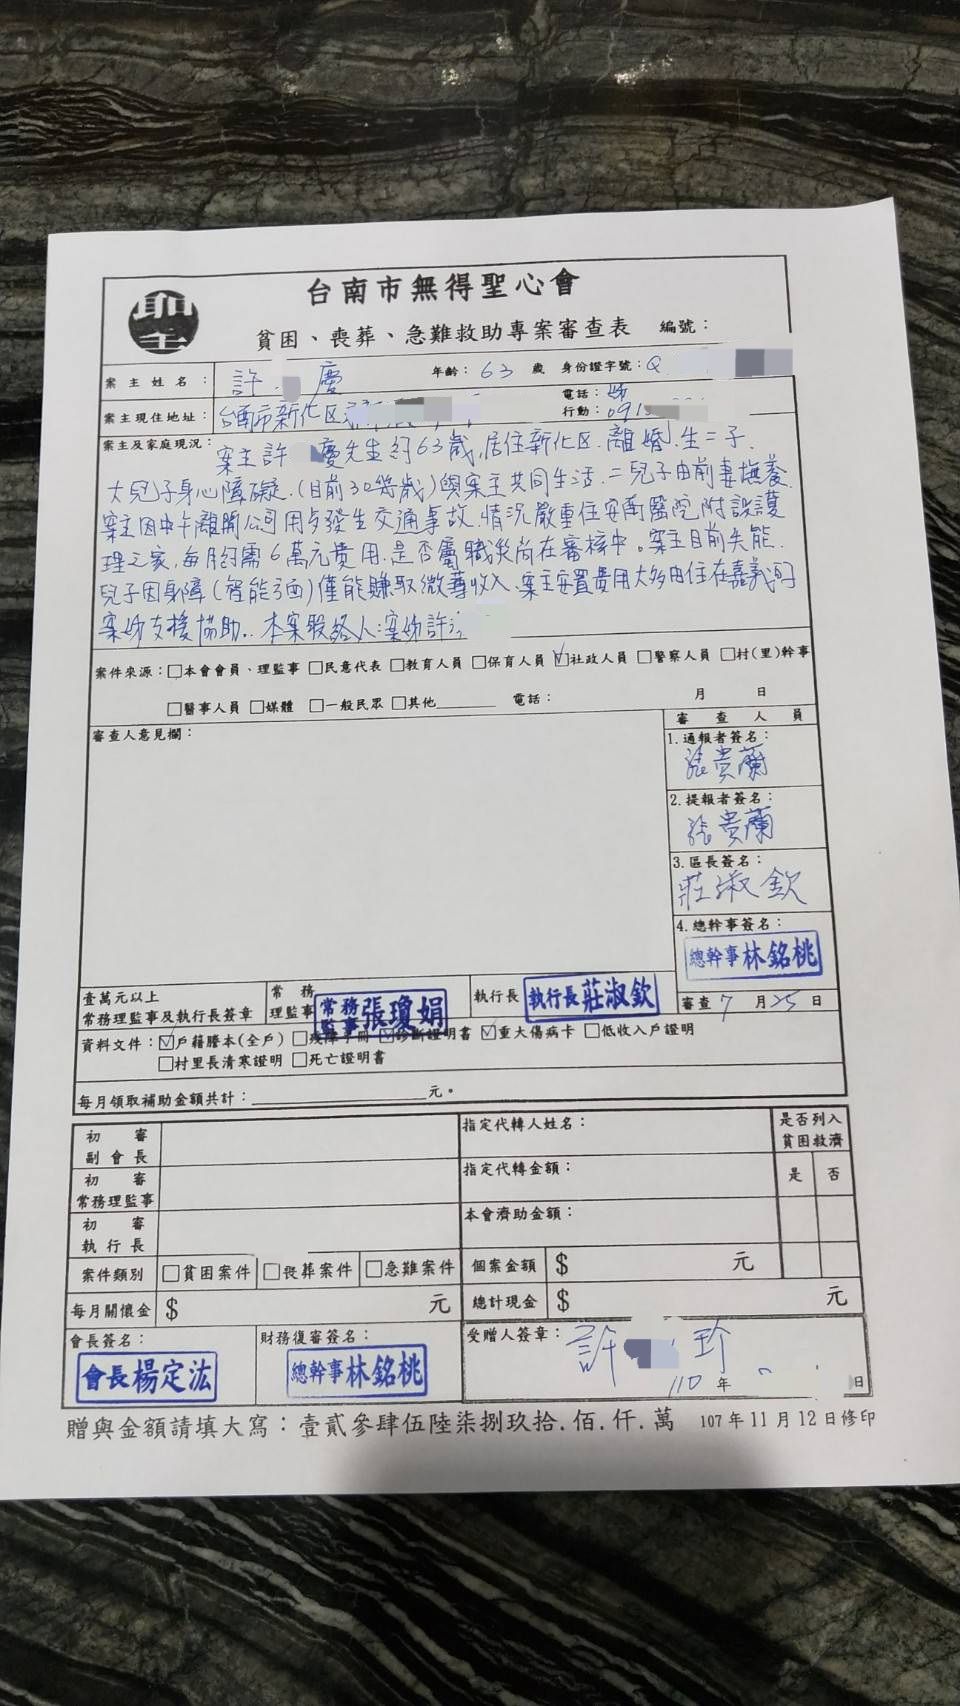 台南市無得聖心會
貧困、喪葬、急難救助專案審查表 編號：
案主姓名： 許 慶 年齡：63 歲 身份證字號：Q
案主現住地址： 台南市新化区 電話：
行動：091
案主及家庭現況： 案主許 慶先生約63歲,居住新化区.離婚.生二子.
大兒子身心障礙.(目前30幾歲)與案主共同生活.二兒子由前妻撫養.
案主因中午離開公司用歺發生交通事故.情況嚴重住安南醫院附設護
理之家,每月約需6萬元費用.是否屬職災尚在審核中。案主目前失能.
兒子因身障(智能)僅能賺取微薄收入、案主安置費用大多由住在嘉義的
案妹支援協助..本案聯絡人:案妹許
案件來源：□本會會員、理監事□民意代表□教育人員□保育人員☑社政人員□警察人員□村(里)幹事
□醫事人員□媒體 □一般民眾□其他______ 電話： 月 日
審查人意見欄：
審查人員
1.通報者簽名：
張貴蘭
2.提報者簽名：
張貴蘭
3.區長簽名：
莊淑欽
4.總幹事簽名：
總幹事林銘桃
審查7月25日
壹萬元以上
常務理監事及執行長簽章
常務
理監事
常務監事張瓊娟
執行長
執行長莊淑欽
資料文件：☑戶籍謄本(全戶)□殘障手冊☑診斷證明書☑重大傷病卡□低收入戶證明
□村里長清寒證明□死亡證明書
每月領取補助金額共計：______元。
初審
副會長
初審
常務理監事
初審
執行長
指定代轉人姓名：
指定代轉金額：
本會濟助金額：
是否列入
貧困救濟
是 否
案件類別 □貧困案件 □喪葬案件 □急難案件 個案金額 $ 元
每月關懷金 $ 元 總計現金 $ 元
會長簽名：
會長楊定汯
財務復審簽名：
總幹事林銘桃
受贈人簽章：
許 珍
110年 日
贈與金額請填大寫：壹貳參肆伍陸柒捌玖拾.佰.仟.萬 107年11月12日修印